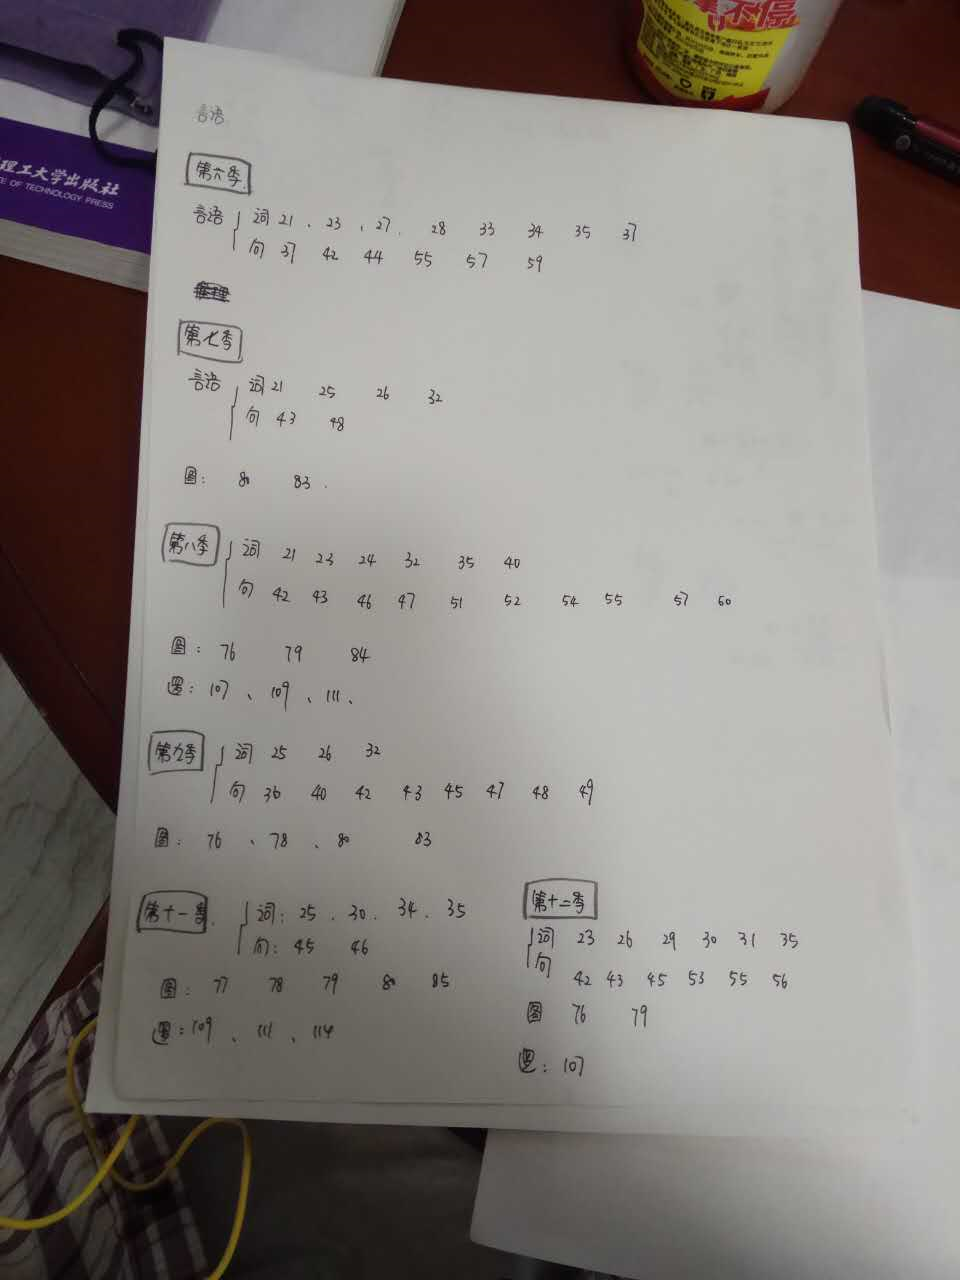 理工大学出版社
TE OF TECHNOLOGY PRESS
言语
第六季.
言语 词 21 、 23 、 27. 28 33 34 35 37
句 37 42 44 55 57 59
第七季
言语 词 21 25 26 32
句 43 48
图: 80 83 .
第八季 词 21 23 24 32 35 40
句 42 43 46 47 51 52 54 55 57 60
图: 76 79 84
逻: 107 、 109 、 111 、
第九季 词 25 26 32
句 36 40 42 43 45 47 48 49
图: 76 、 78 、 80 83
第十一季. 词: 25 . 30 . 34 . 35
句: 45 46
图: 77 78 79 80 85
逻: 109 、 111 、 114
第十二季
词 23 26 29 30 31 35
句 42 43 45 53 55 56
图 76 79
逻: 107